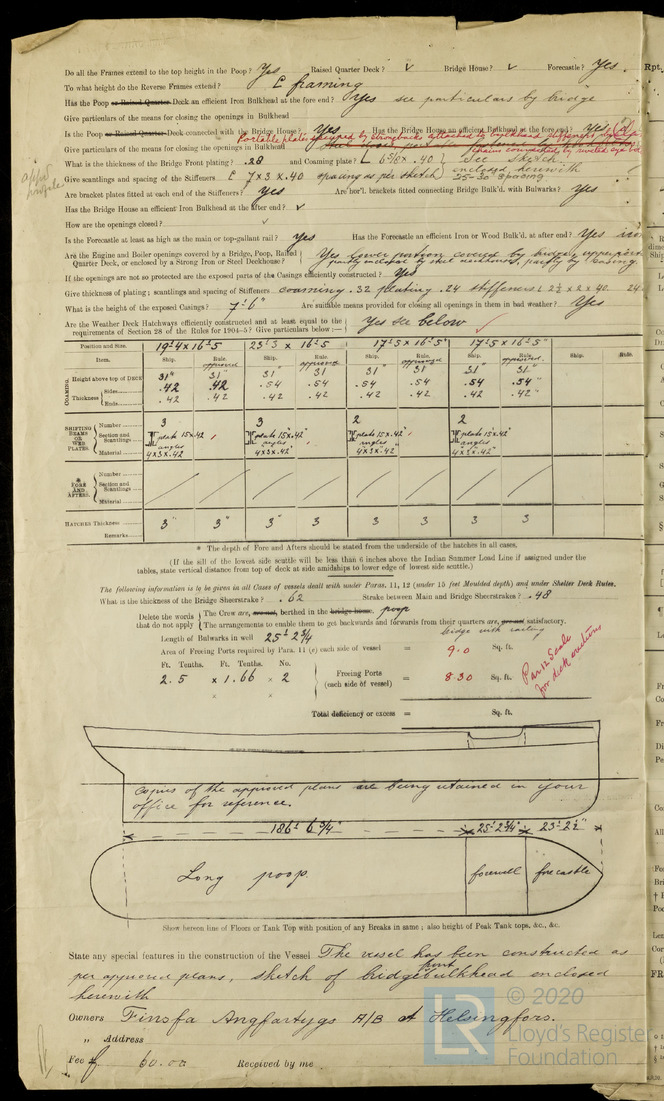 Do all the Frames extend to the top height in the Poop? Yes Raised Quarter Deck? ✓ Bridge House? ✓ Forecastle? Yes.
To what height do the Reverse Frames extend? [ framing
Has the Poop or Raised Quarter Deck an efficient Iron Bulkhead at the fore end? Yes see particulars by bridge
Give particulars of the means for closing the openings in Bulkhead
Is the Poop or Raised Quarter Deck connected with the Bridge House? Yes Has the Bridge House an efficient Bulkhead at the fore end? Yes
Portable plates
Give particulars of the means for closing the openings in Bulkhead
What is the thickness of the Bridge Front plating? .28 and Coaming plate? .40 See sketch
enclosed herewith
Give scantlings and spacing of the Stiffeners [ 7 x 3 x .40 spacing as per sketch 25-30 spacing
Are bracket plates fitted at each end of the Stiffeners? Yes Are hor'l. brackets fitted connecting Bridge Bulk'd. with Bulwarks? Yes
Has the Bridge House an efficient Iron Bulkhead at the after end? ✓
How are the openings closed? ✓
Is the Forecastle at least as high as the main or top-gallant rail? Yes Has the Forecastle an efficient Iron or Wood Bulk'd. at after end? Yes iron
Are the Engine and Boiler openings covered by a Bridge, Poop, Raised Quarter Deck, or enclosed by a Strong Iron or Steel Deckhouse? Yes lower portion covered by bridge upper part
partly enclosed by steel deckhouse, partly by casing.
If the openings are not so protected are the exposed parts of the Casings efficiently constructed? Yes
Give thickness of plating; scantlings and spacing of Stiffeners coaming .32 plating .24 stiffeners 2½ x 2 x .20 24.
What is the height of the exposed Casings? 7'-6" Are suitable means provided for closing all openings in them in bad weather? Yes
Are the Weather Deck Hatchways efficiently constructed and at least equal to the requirements of Section 28 of the Rules for 1904-5? Give particulars below:— Yes see below
Position and Size. 19'-4 x 16'-5 23'-3 x 16'-5 17'-5 x 16'-5" 17'-5 x 16'-5"
Item. Ship. Rule. Ship. Rule. Ship. Rule. Ship. Rule. Ship. Rule.
approved approved approved approved.
COAMING. Height above top of DECK 31" 31 31 31 31 31 31 31
Thickness Sides .42 .42 .54 .54 .54 .54 .54 .54
Ends .42 .42 .42 .42 .42 .42 .42 .42
SHIFTING BEAMS OR WEB PLATES. Number 3 3 2 2
Section and Scantlings plate 15 x .42 plate 15" x .42" plate 15 x .42" plate 15 x .42"
angles angles angles angles
Material 4 x 3 x .42 4 x 3 x .42" 4 x 3 x .42" 4 x 3 x .42"
* FORE AND AFTERS. Number
Section and Scantlings
Material
HATCHES Thickness 3" 3" 3 3 3 3 3 3
Remarks
* The depth of Fore and Afters should be stated from the underside of the hatches in all cases.
(If the sill of the lowest side scuttle will be less than 6 inches above the Indian Summer Load Line if assigned under the
tables, state vertical distance from top of deck at side amidships to lower edge of lowest side scuttle.)
The following information is to be given in all Cases of vessels dealt with under Paras. 11, 12 (under 15 feet Moulded depth) and under Shelter Deck Rules.
What is the thickness of the Bridge Sheerstrake? .62 Strake between Main and Bridge Sheerstrakes? .48
Delete the words that do not apply The Crew are, are not, berthed in the bridge house. poop
The arrangements to enable them to get backwards and forwards from their quarters are, are not satisfactory.
Length of Bulwarks in well 25' 2¾ bridge with
Area of Freeing Ports required by Para. 11 (e) each side of vessel = 9.0 Sq. ft.
Ft. Tenths. Ft. Tenths. No.
2.5 x 1.66 x 2 Freeing Ports (each side of vessel) = 8.30 Sq. ft.
× ×
Par 12 Scale
for deck erections
Total deficiency or excess = Sq. ft.
Copies of the approved plans are being retained in your
office for reference.
186' 6¾" 25' 2¾" 23'-2½"
Long poop. forewell forecastle
Show hereon line of Floors or Tank Top with position of any Breaks in same; also height of Peak Tank tops, &c., &c.
State any special features in the construction of the Vessel The vessel has been constructed as
per approved plans, sketch of bridge front bulkhead enclosed
herewith
Owners Finsfa Angfartygs A/B at Helsingfors.
„ Address
Fee £ 60.00 Received by me
© 2020
LR
Lloyd's Register
Foundation
Rpt.